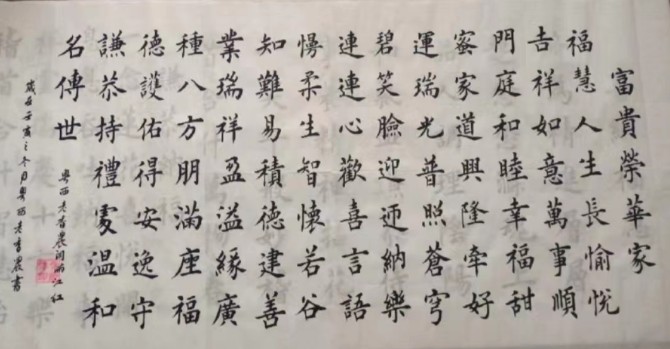 富貴榮華家
福慧人生長愉悅
吉祥如意萬事順
門庭和睦幸福甜
蜜家道興隆牽好
運瑞光普照蒼穹
碧笑臉迎迊納樂
連連心歡喜言語
慢柔生智懷若谷
知難易積德建善
業瑞祥盈溢緣廣
種八方朋滿座福
德護佑得安逸守
謙恭持禮處溫和
名傳世
粵西老農詞江紅
歲在壬寅之冬月粵西老書農書